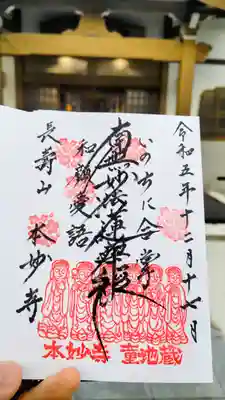 令和五年十二月十七日
いのちに合掌
南無妙法蓮華経
和顔愛語
長寿山 本妙寺
本妙寺 童地蔵